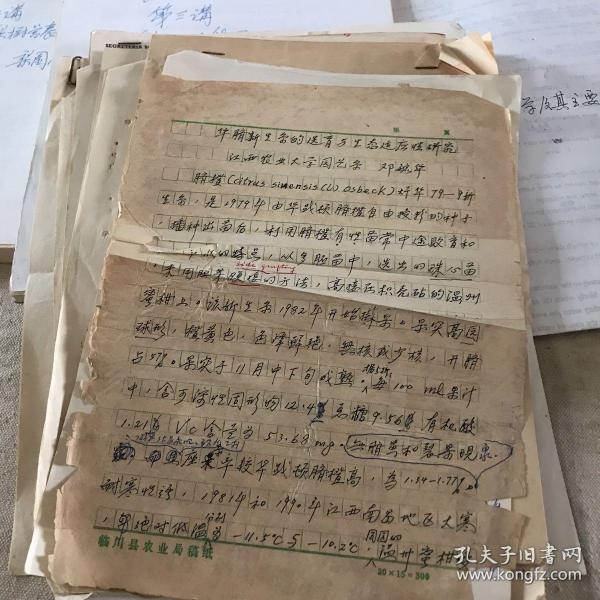 第三讲
SECRETERIA
学及其主要
第 页
华脐新生系的选育与生态适应性研究
江西农业大学园艺系 邓毓华
脐橙(Citrus sinensis(L) Osbeck)华79-9新
生系,是1979年由华盛顿脐橙自由授粉的种子
,播种出苗后,利用脐橙有性苗常中途败育和
的特点,以多胚苗中,选出的珠心苗
Side grafting
采用 腹接的方法,高接在枳壳砧的温州
蜜柑上。该新生系1982年开始挂果。果实高圆
球形,橙黄色,色泽鲜艳,无核或少核,开脐
占 %。果实于11月中下旬成熟。每100ml果汁
中,含可溶性固形物12.4 总糖9.56 有机酸
1.21 Vc含量为53.68mg。无脐黄和裂果现象。
座果率较华盛顿脐橙高,为1.34-1.77%。
耐寒性强,1981年和1990年江西南昌地区大寒
,绝对低温分别为-11.5℃与-10.2℃,周围的温州蜜柑
临川县农业局稿纸 20×15=300
孔夫子旧书网
www.kongfz.com